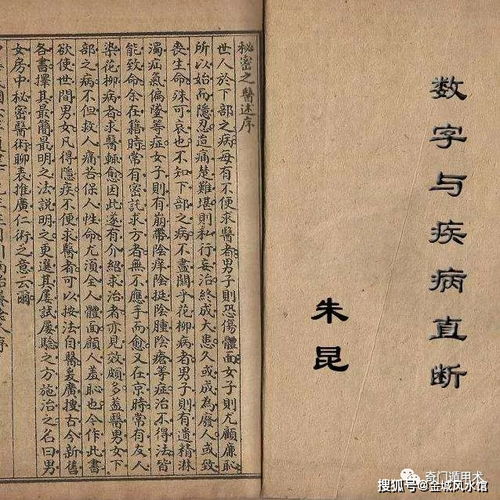 数字与疾病直断
朱昆
秘密之醫述序
世人於下部之病每有不便求醫者男子則恐傷體面女子則尤顧廉恥
所以始而隱忍造痛楚難堪則私行妄治終成大患久或成為廢人或致
喪生命殊可哀也不知下部之病不盡關乎花柳病者男子則有遺精淋
濁疝氣偏墜等症女子則有崩帶陰痒陰挺陰腫陰瘡等症治不得法皆
能致命余在籍時常有密託求方者無不應手而愈又在京時常有友人
染花柳病者求醫輒愈因此遂有介紹求治者亦見效頗多茲醫男女下
部之病不但救人痛苦保人性命尤須全人體面顧人羞恥也今作此書
欲使世間男女凡得隱疾不便求醫者可以按法自醫爰廣搜古今新舊
各書擇其最簡最明之法說明之更選其屢試屢驗之方施治之名曰男
女房中秘密醫術聊表推廣仁術之意云爾
奇门遁甲术
搜狐号@金城风水馆